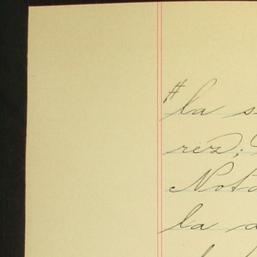 "la s
rez; 
Nota
la a